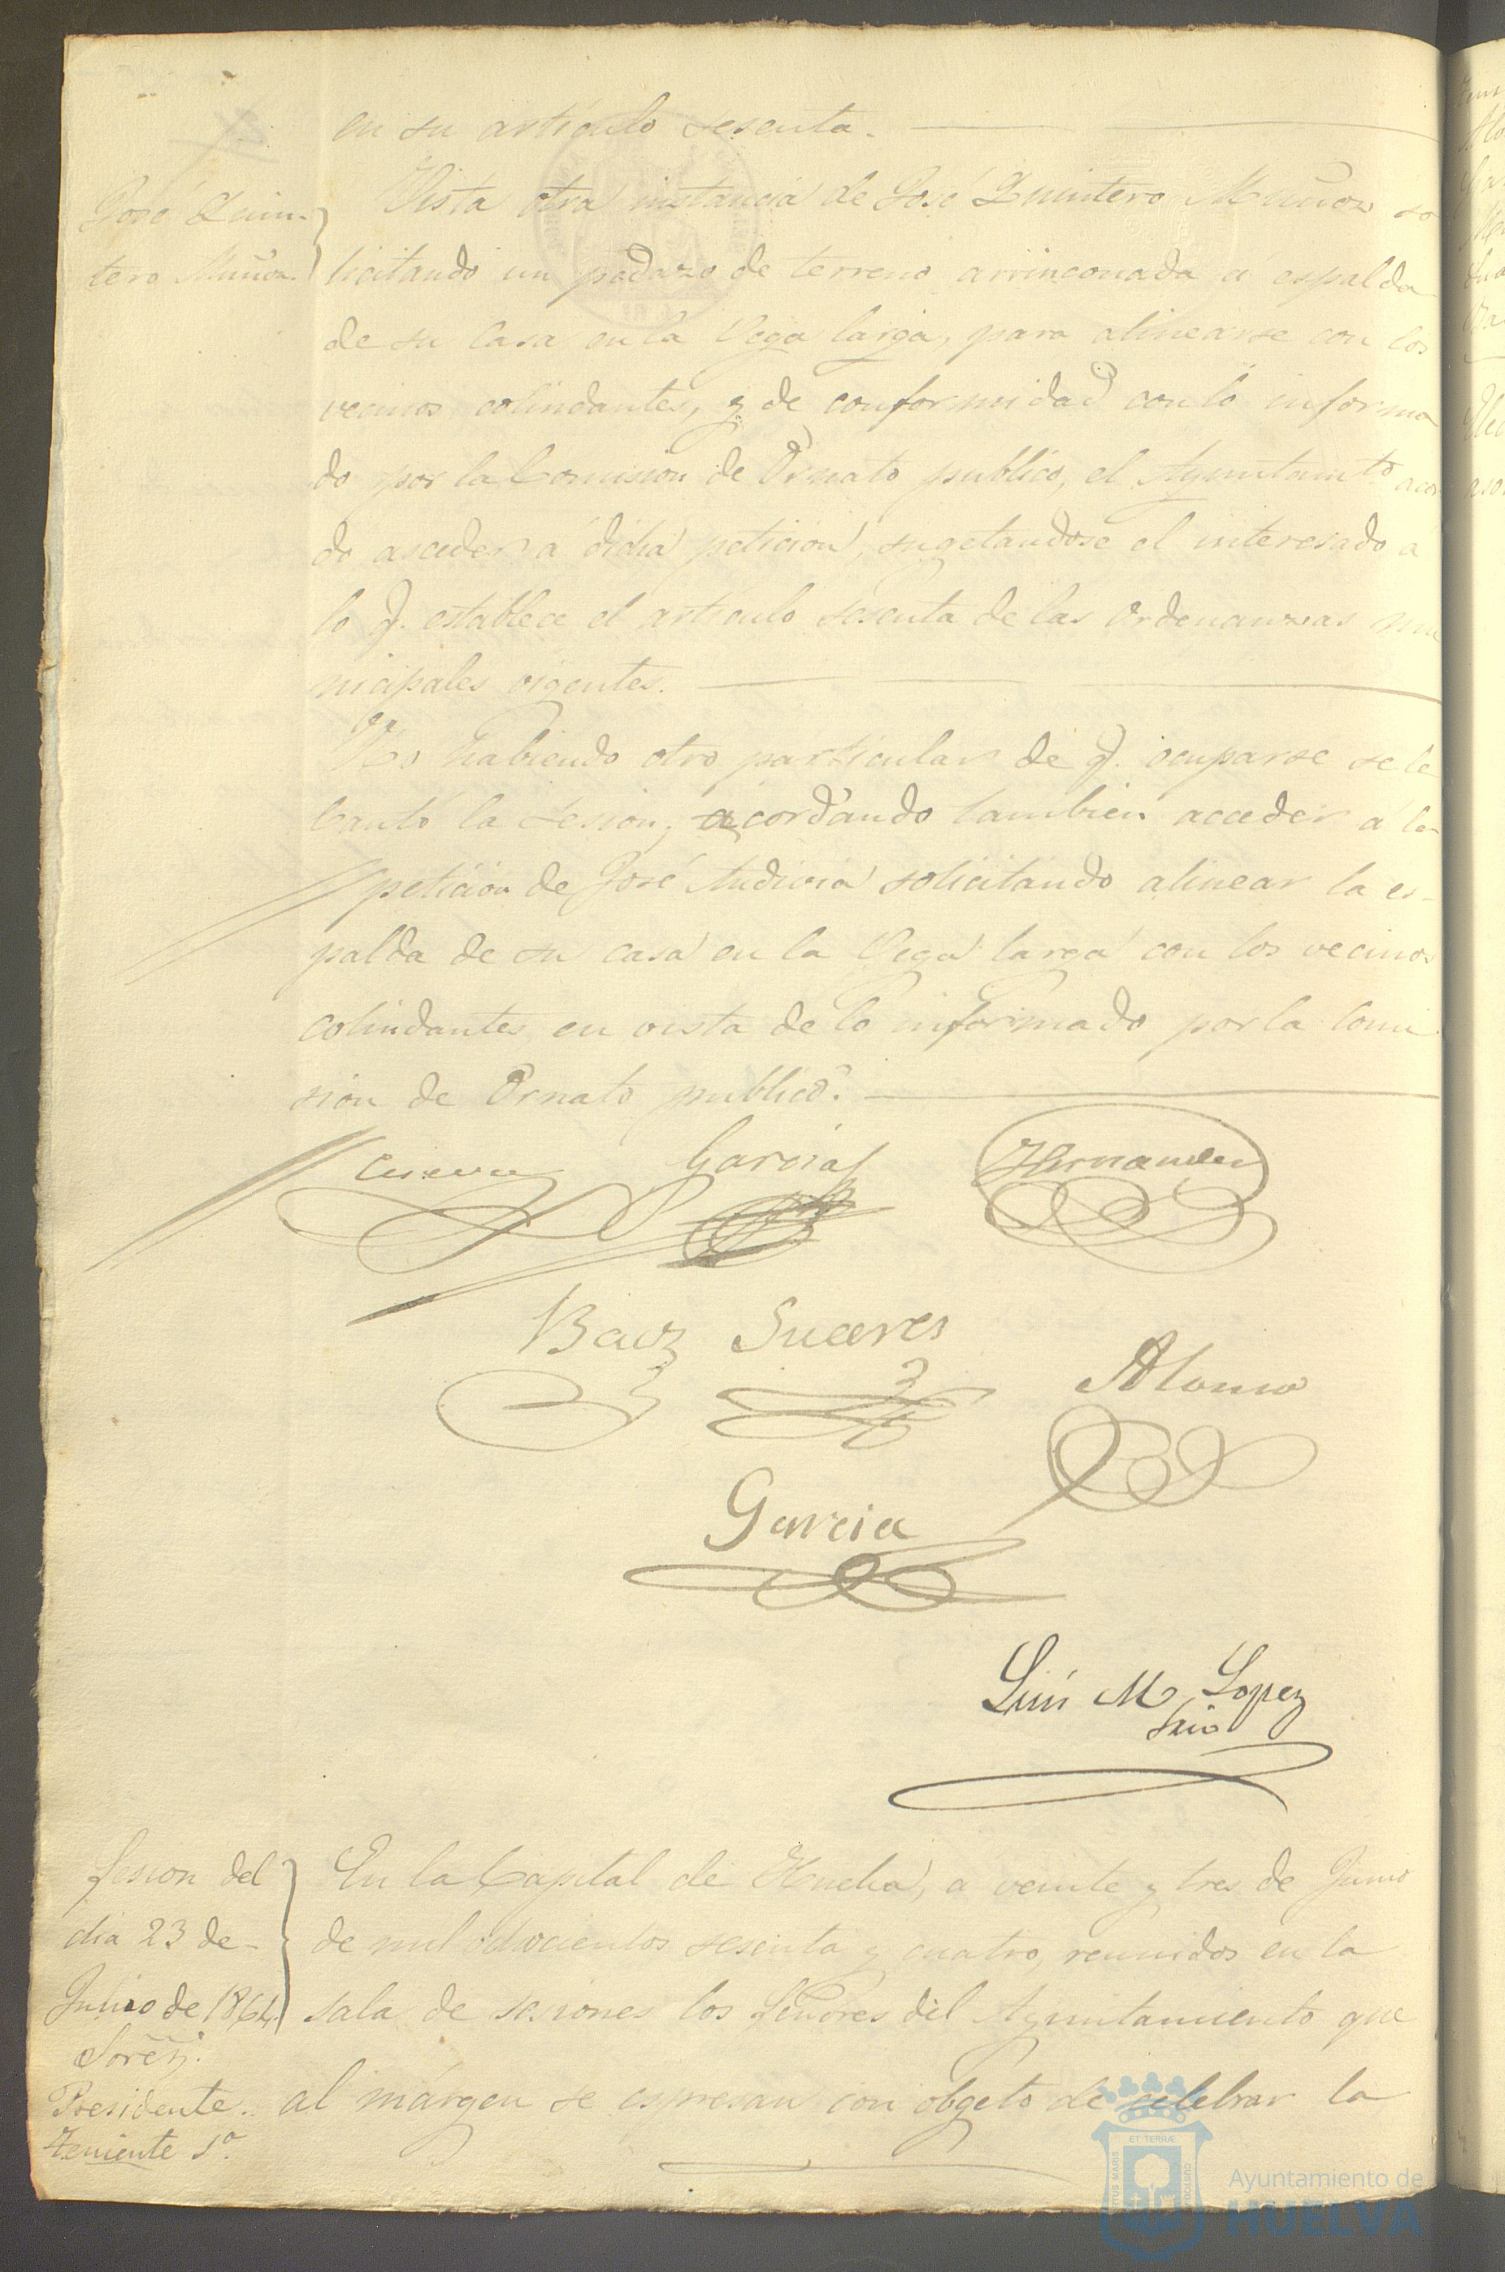 en su articulo sesenta.
José Quin-
tero Muñoz.
Vista otra instancia de José Quintero Muñoz so
licitando un pedazo de terreno arrinconado á espalda
de su casa en la Vega larga, para alinearse con los
vecinos colindantes, y de conformidad con lo informa
do por la Comision de Ornato publico, el Ayuntamto acor
do acceder á dicha peticion, sugetandose el interesado á
lo q. establece el articulo sesenta de las Ordenanzas mu
nicipales vigentes.
No habiendo otro particular de q. ocuparse se le
bantó la sesion, acordando tambien acceder á la
peticion de José solicitando alinear la es-
palda de su casa en la Vega larga con los vecinos
colindantes en vista de lo informado por la Comi
sion de Ornato publico.
Garcia Hernandez
Baez Suarez
Alonso
Garcia
Luis M Lopez
Srio
Sesion del
dia 23 de
Junio de 1864.
Señores
Presidente.
Teniente 1º.
En la Capital de Huelva, a veinte y tres de Junio
de mil ochocientos sesenta y cuatro, reunidos en la
sala de sesiones los Señores del Ayuntamiento que
al márgen se espresan con obgeto de celebrar la
ET TERRÆ
PORTUS MARIS
CUSTODIA
Ayuntamiento de
HUELVA